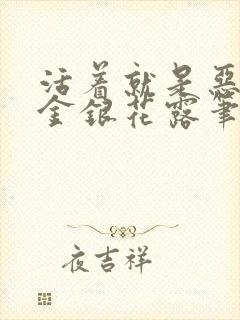 活着就是恶
金银花露笔
夜吉祥